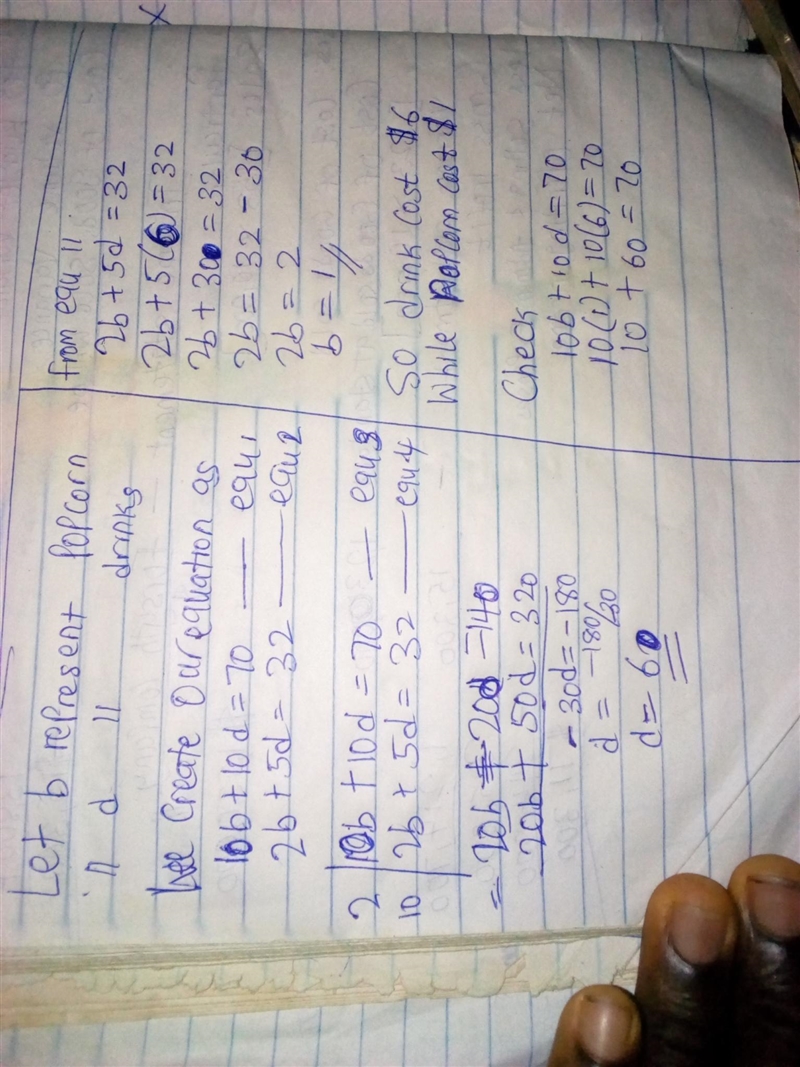 Let b represent popcorn
" d " drinks
We Create Our equation as
10b + 10d = 70 —— equ 1
2b + 5d = 32 —— equ 2
2 | 10b + 10d = 70 — equ 3
10 | 2b + 5d = 32 —— equ 4
= 20b + 20d = 140
20b + 50d = 320
- 30d = -180
d = -180/30
d = 6
From equ 11
2b + 5d = 32
2b + 5(6) = 32
2b + 30 = 32
2b = 32 - 30
2b = 2
b = 1 //
So drink cost $6
While Popcorn cost $1
Check
10b + 10d = 70
10(1) + 10(6) = 70
10 + 60 = 70
x